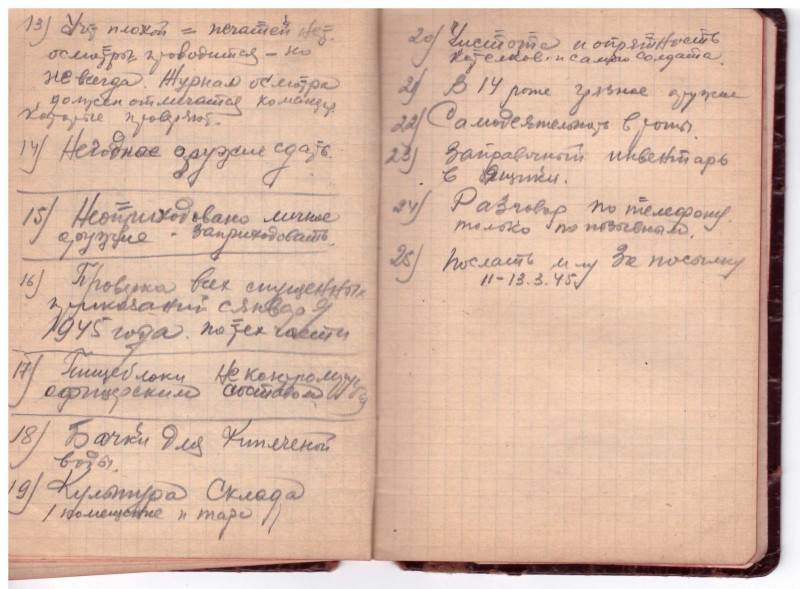 13) Уч. плохой = печатей нет.
осмотры проводится – но
не всегда. Журнал осмотра
должен отмечатся команди
которые проверяют.
14) Негодное оружие сдать.
15) Неоприходовано личное
оружие - заприходовать.
16) Проверка всех спущенных
приказаний с января
1945 года. по тех части
17) Пищеблоки не контролируются
офицерским составом
18) Бачки для кипяченой
воды.
19) Культура склада
/ помещение и тара /
20) Чистота и опрятность
котелков и самого солдата.
21) В 14 роте грязное оружие
22) Самодеятельность в роты.
23) Заправочный инвентарь
в ящики.
24) Разговор по телефону.
только по позывным.
25) послать за посылку
11-13.3.45